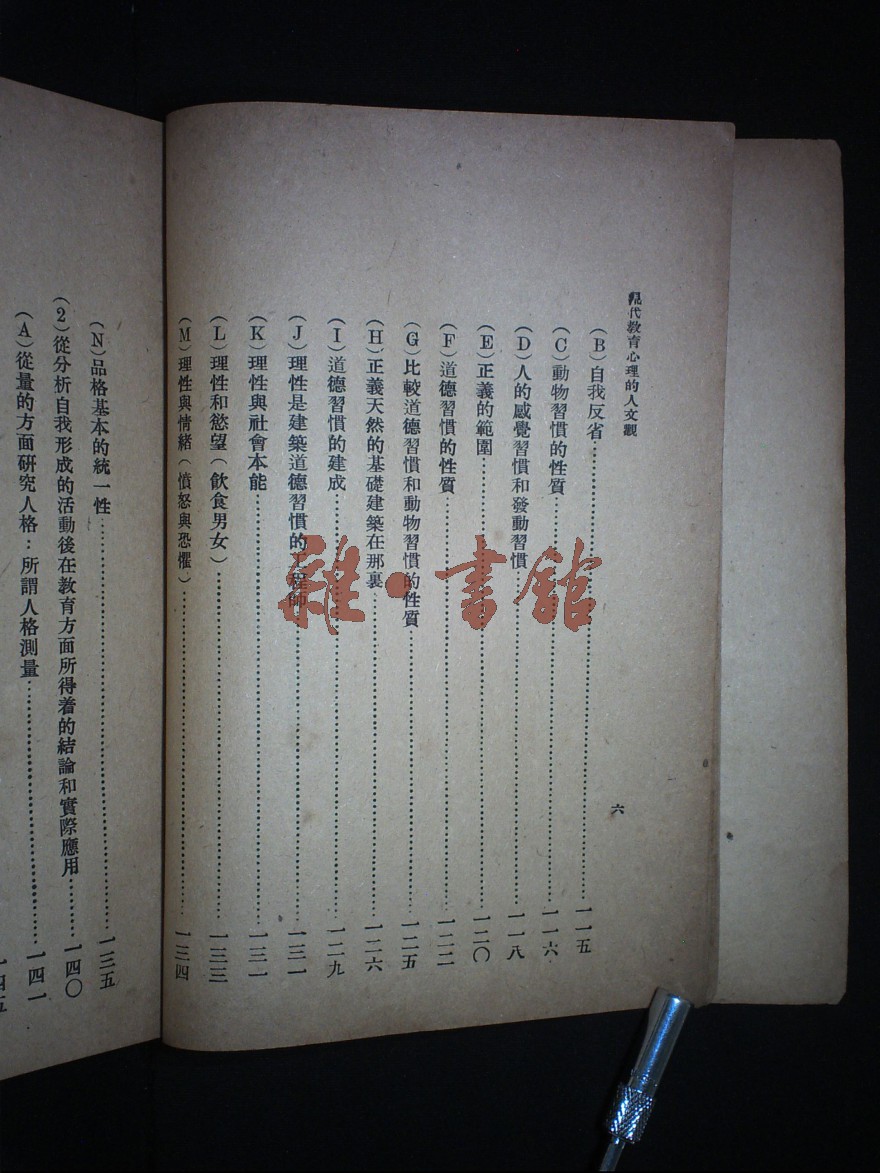 現代教育心理的人文觀
六
(B)自我反省…………一一五
(C)動物習慣的性質…………一一六
(D)人的感覺習慣和發動習慣…………一一八
(E)正義的範圍…………一二〇
(F)道德習慣的性質…………一二二
(G)比較道德習慣和動物習慣的性質…………一二五
(H)正義天然的基礎建築在那裏…………一二六
(I)道德習慣的建成…………一二九
(J)理性是建築道德習慣的工程師…………一三一
(K)理性與社會本能…………一三一
(L)理性和慾望(飲食男女)…………一三三
(M)理性與情緒(憤怒與恐懼)…………一三四
(N)品格基本的統一性…………一三五
(2)從分析自我形成的活動後在教育方面所得着的結論和實際應用…………一四〇
(A)從量的方面研究人格:所謂人格測量…………一四一
一四五
雜·書館